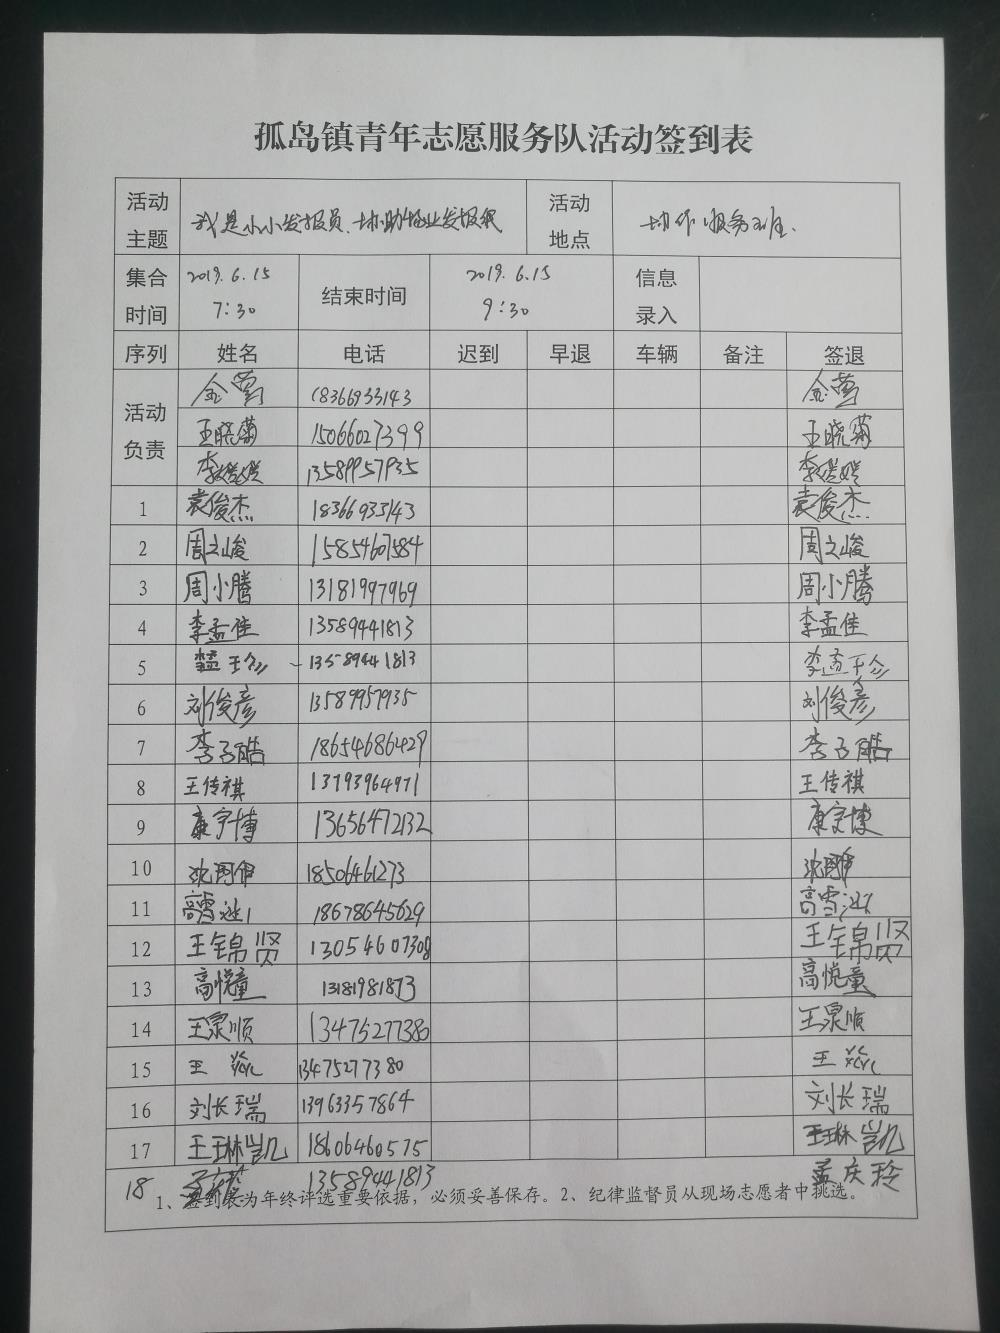 孤岛镇青年志愿服务队活动签到表
活动主题 我是小小发报员、协助物业发报纸 活动地点 协作服务班.
集合时间 2019.6.15 7:30 结束时间 2019.6.15 9:30 信息录入
序列 姓名 电话 迟到 早退 车辆 备注 签退
活动负责 金莺 18366933143 金莺
王晓菊 15066027399 王晓菊
李媛媛 13589957935 李媛媛
1 袁俊杰 18366933143 袁俊杰
2 周文峻 15854607584 周文峻
3 周小腾 13181997969 周小腾
4 李孟佳 13589441813 李孟佳
5 13589441813 李孟
6 刘俊彦 13589957935 刘俊彦
7 李子皓 18654686429 李子皓
8 王传祺 13793964971 王传祺
9 康宇博 13656472132 康宇博
10 沈 18506461273 沈
11 高雪 18678645629 高雪
12 王锦贤 13054607308 王锦贤
13 高悦童 13181981873 高悦童
14 王泉顺 13475277380 王泉顺
15 王 13475277380 王
16 刘长瑞 13963357864 刘长瑞
17 王琳凯 18606460575 王琳凯
18 13589441813 孟庆玲
1、签到表为年终评选重要依据，必须妥善保存。2、纪律监督员从现场志愿者中挑选。